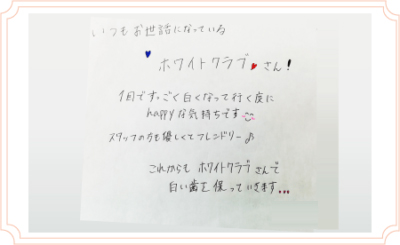 いつもお世話になっている
ホワイトクラブ さん!
1回です。ごく白くなって行く度に
happyな気持ちです
スタッフの方も優しくてフレンドリー♪
これからも ホワイトクラブさんで
白い歯を保っていきます...